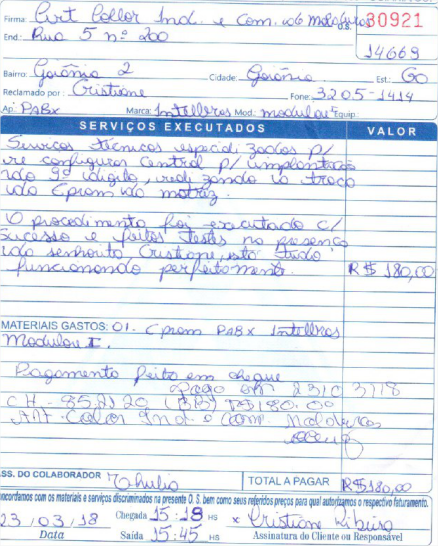 Firma: Art Collor Ind. e Com. de Molduras 30921
O.S.
End: Rua 5 nº 200
14669
Bairro: Goiânia 2 Cidade: Goiânia Est.: GO
Reclamado por: Cristiane Fone: 3205-1414
Ap: PABX Marca: Intelbras Mod: modulare Equip:
SERVIÇOS EXECUTADOS VALOR
Servicos técnicos especializados p/
re configurar Central p/ implantação
do 9º digito, realizando a troca
da Eprom da matriz.
O procedimento foi executado c/
sucesso e feitos testes na presença
da senhorita Cristiane, está tudo
funcionando perfeitamente. R$ 180,00
MATERIAIS GASTOS: 01. Eprom PABX Intelbras
Modulare I.
Pagamento feito em cheque
Pago em 23/03/18
CH - 852120 (BB) R$180.00
Art Color Ind. e Com. Molduras
ASS. DO COLABORADOR Thulio TOTAL A PAGAR R$180,00
oncordamos com os materiais e serviços discriminados na presente O. S. bem como seus referidos preços para qual autorizamos o respectivo faturamento.
23/03/18 Chegada 15:18 HS x Cristiane Ribeiro
Data Saída 15:45 HS Assinatura do Cliente ou Responsável